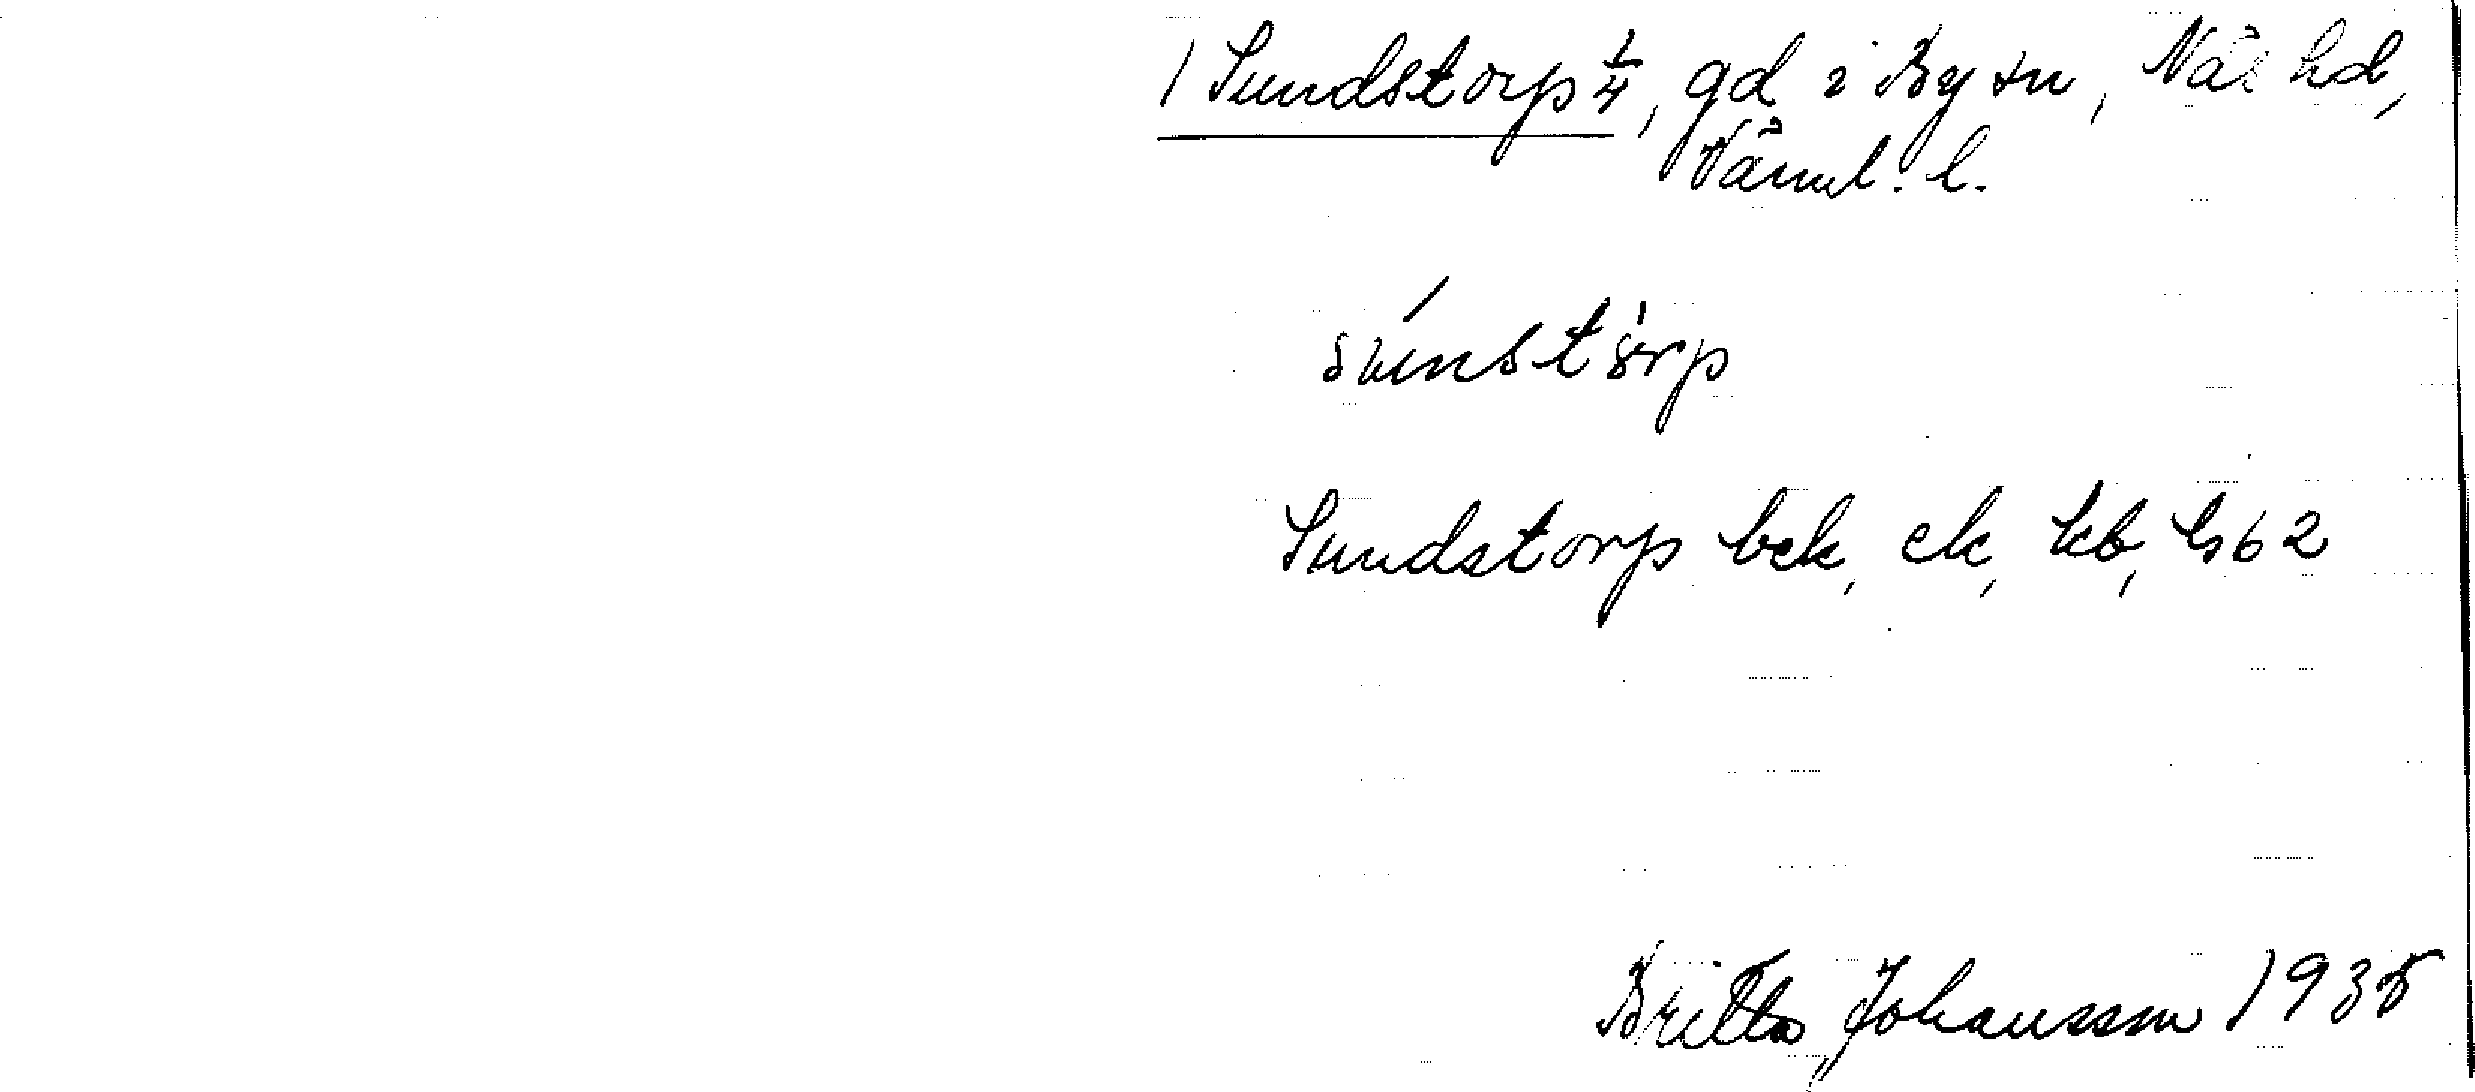 1 Sundstorp 1/4, gd i By sn, Näs hd,
Värml. l.
súnstòrp
Sundstorp bck, ek, kb, hs 62
Britta Johansson 1935